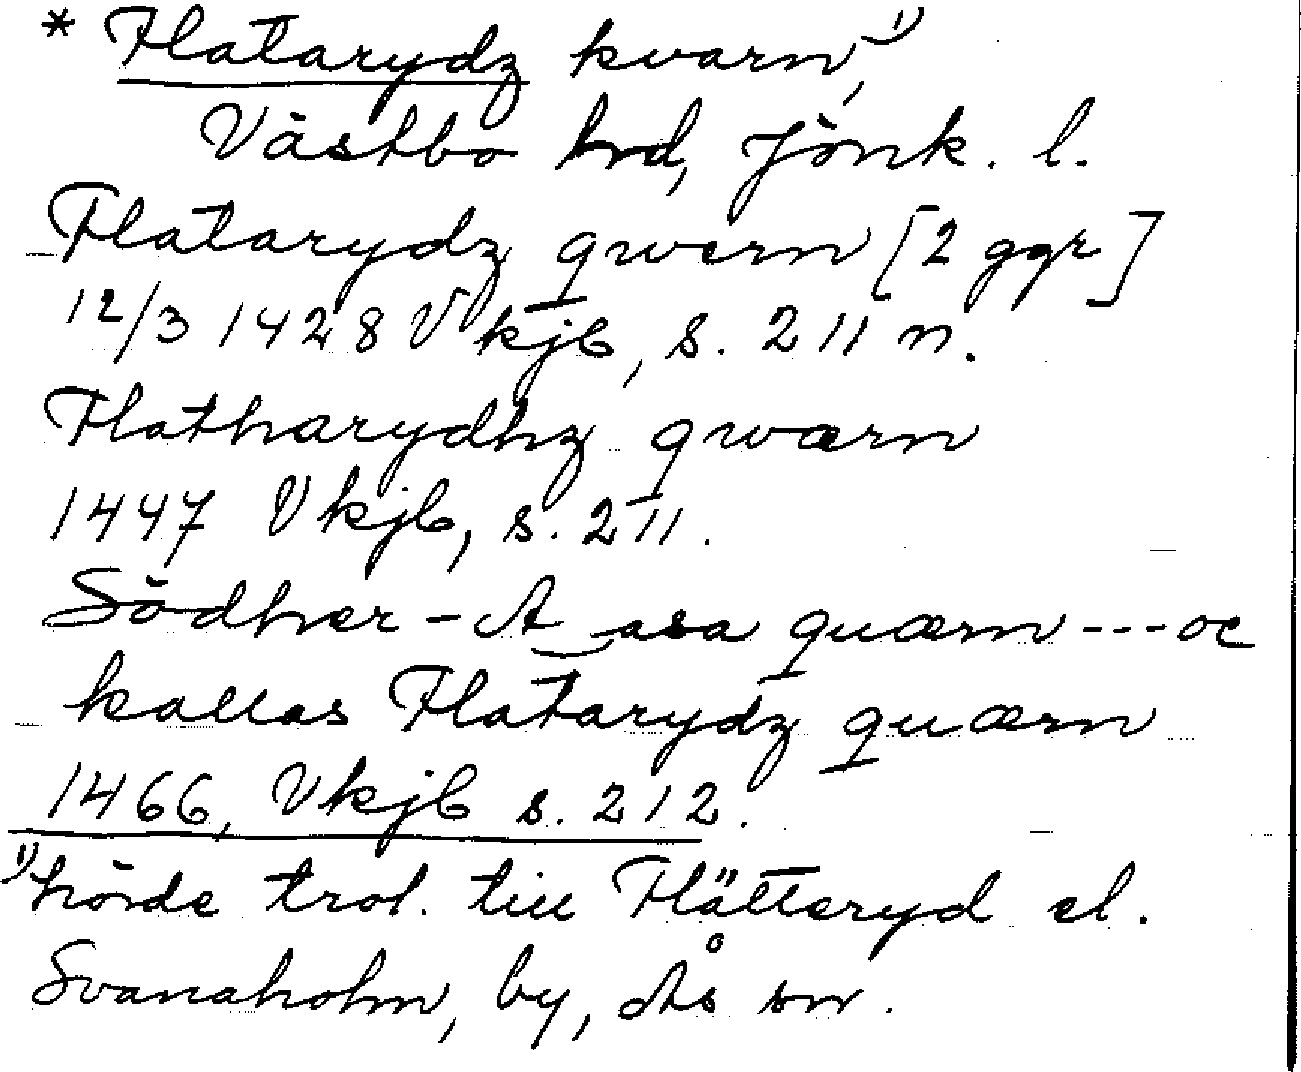 * Flatarydz kvarn,¹⁾
Västbo hrd, Jönk. l.
Flatarydz qwern [2 ggr]
12/3 1428 Vkjb, s. 211 n.
Flatharydhz qwærn
1447 Vkjb, s. 211.
Södher-A_asa quærn---oc
kallas Flatarydz quærn
1466, Vkjb s. 212.
¹⁾hörde trol. till Flätteryd el.
Svanaholm, by, Ås sn.